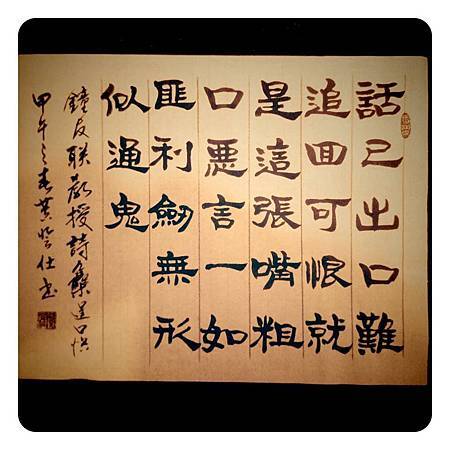 話已出口難
追回可恨就
是這張嘴粗
口惡言一如
匪利劍無形
似通鬼
鐘友联教授詩集
甲午之春黃仕書